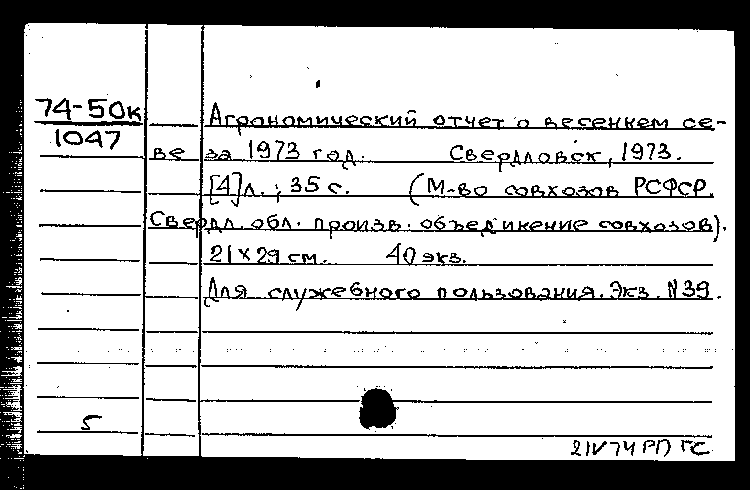 74-50к
1047
Агрономический отчет о весеннем се-
ве за 1973 год. Свердловск, 1973.
[4]л.; 35 с. (М-во совхозов РСФСР.
Свердл. обл. произв. объединение совхозов).
21×29 см. 40 экз.
Для служебного пользования. Экз. №39.
5
21V74 РП ГС